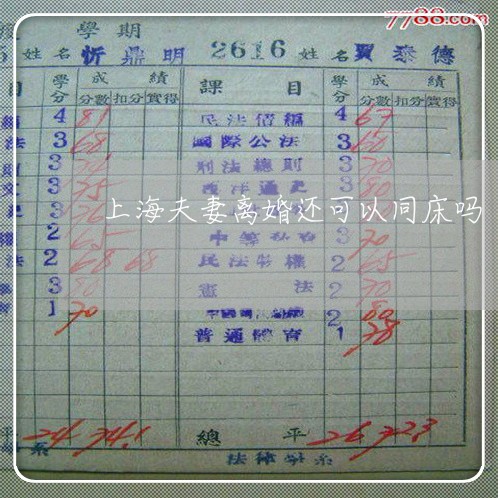 7788.com
學期
姓名 忻鼎明 2616 姓名 賈泰德
目 學分 成績 課目 學分 成績
分數 扣分 實得 分數 扣分 實得
4 81 民法債編 4 67
法 3 68 國際公法 3
3 刑法總則 3 70
3 75 3 80
上海夫妻离婚还可以同床吗
2 65 3 70
法 2 68 68 民法物權 2 65
3 80 憲法 2 70
1 70 2 80
普通體育 1 78
平 24 74.1 總平 26 72.3
系 法律學系